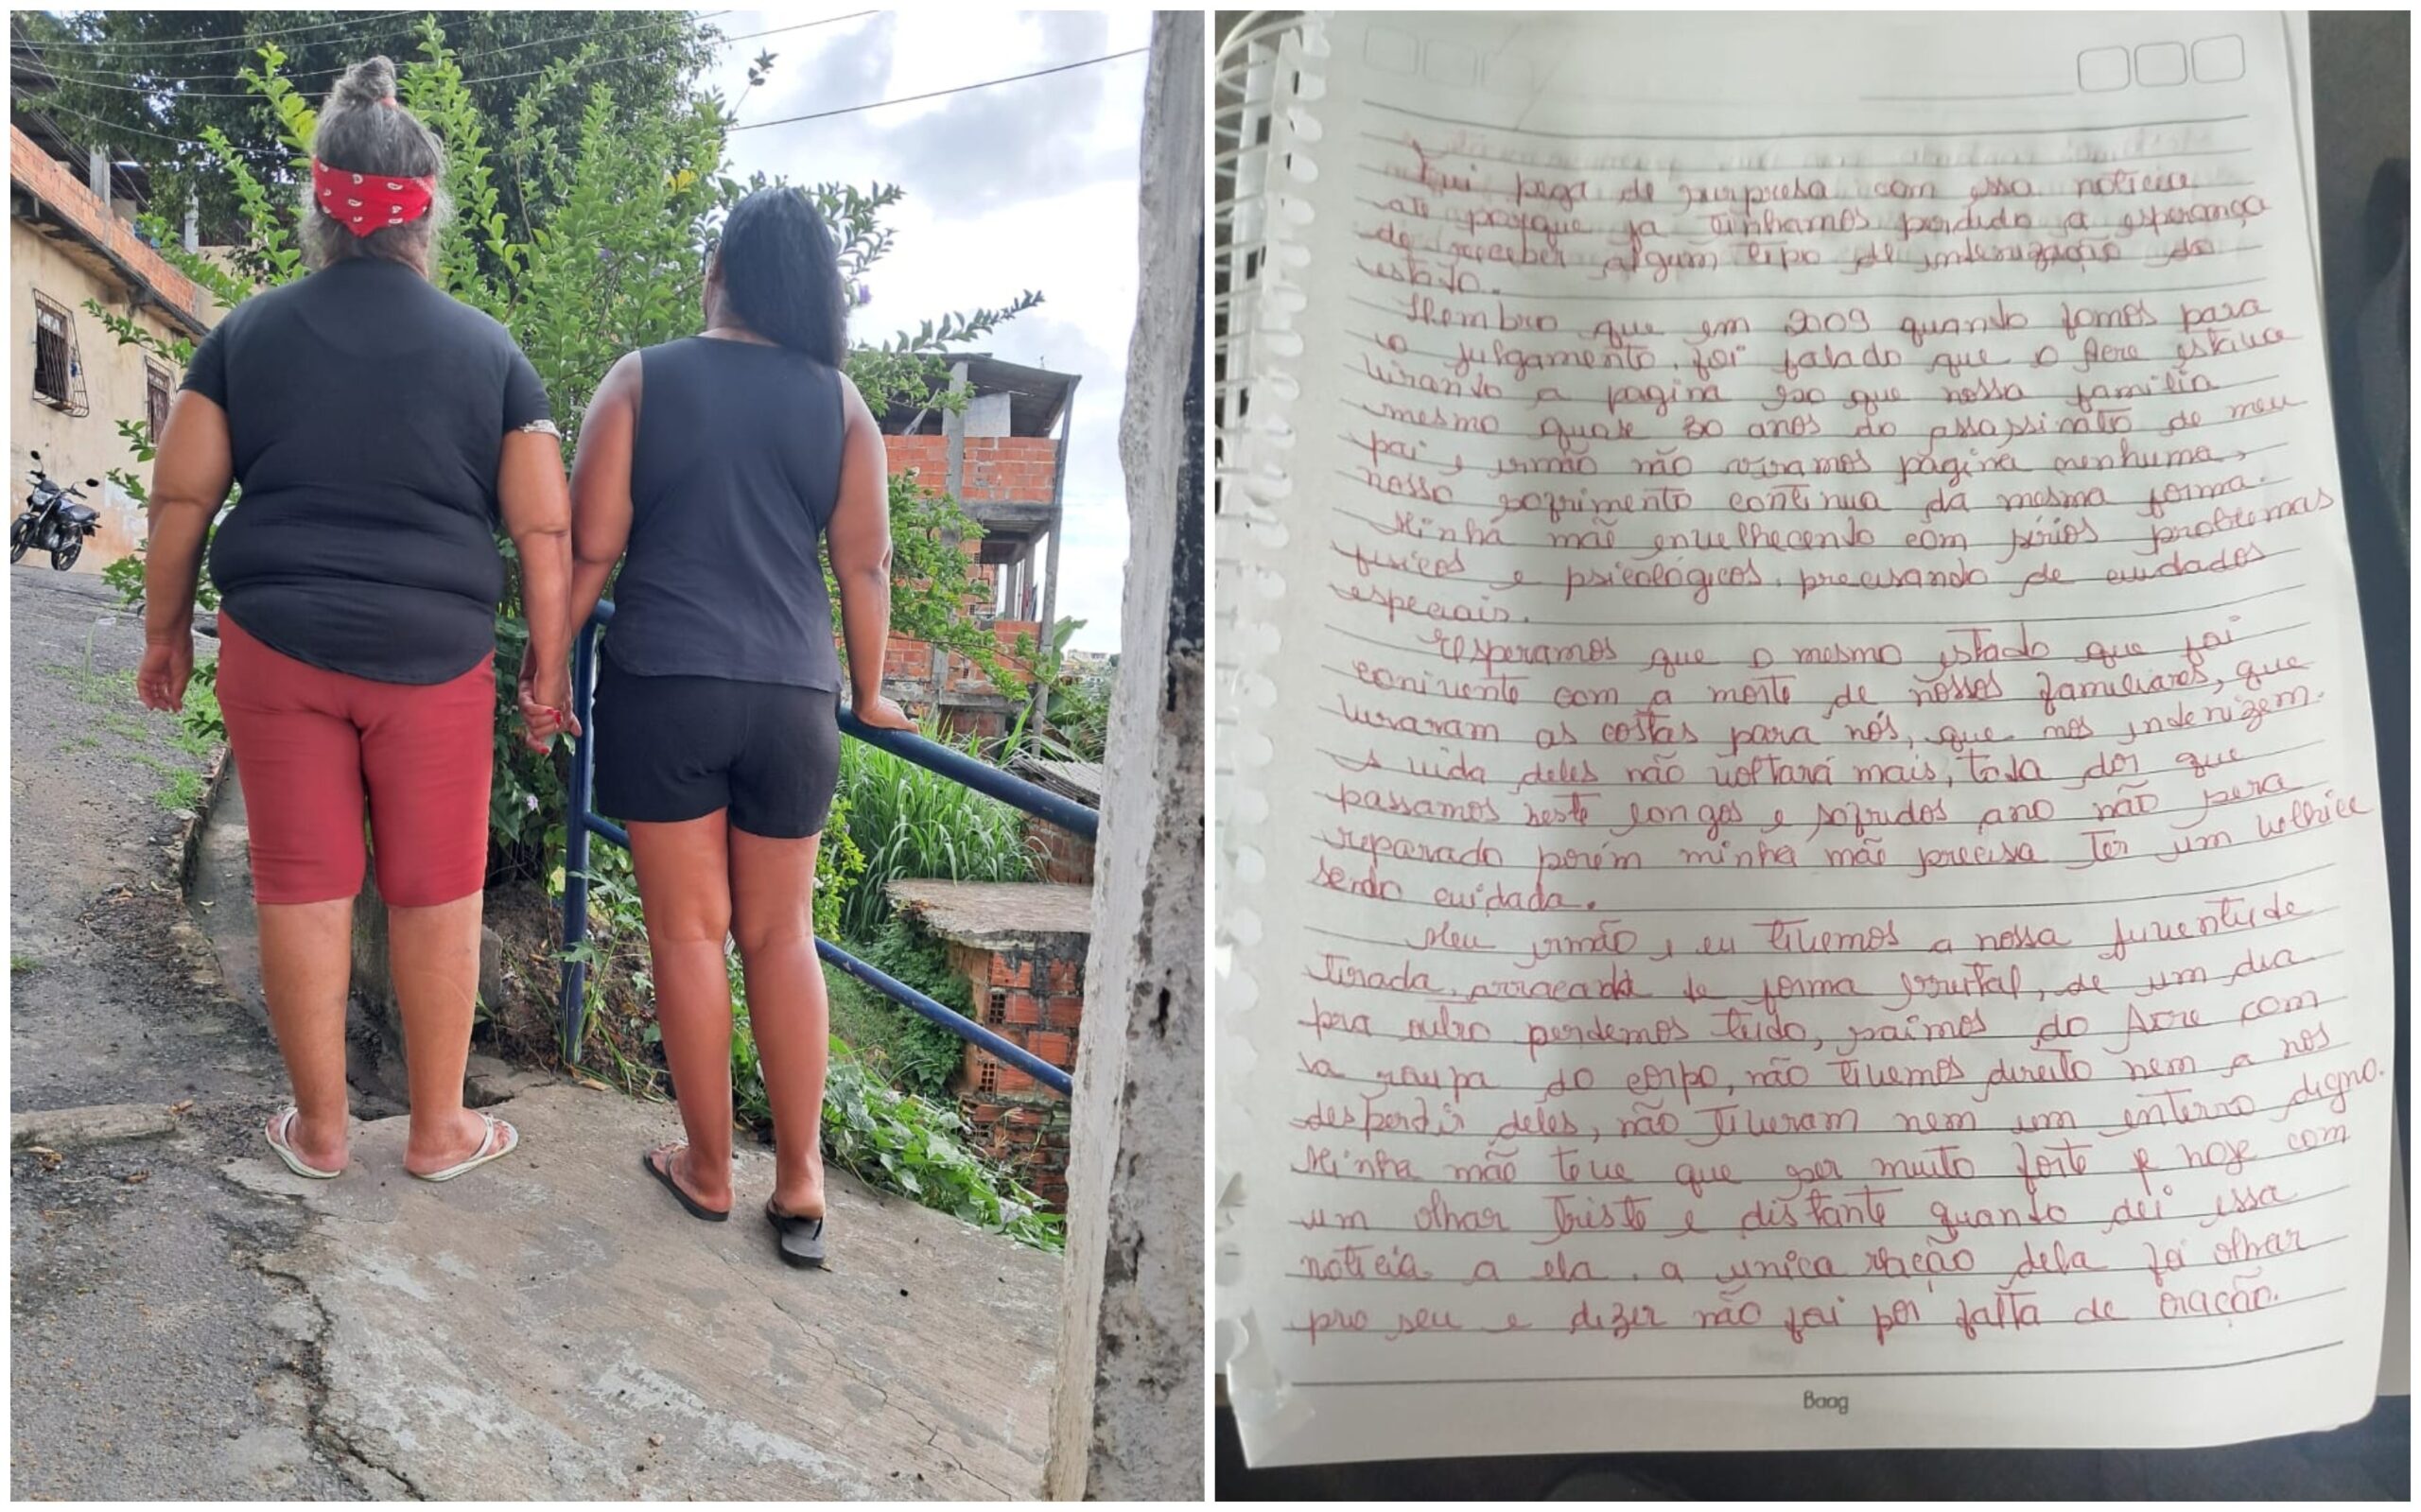 Fui pega de surpresa com essa noticia
até porque ja tinhamos perdido a esperança
de receber algum tipo de indenização do
estado.
Lembro que em 2009 quando fomos para
o julgamento, foi falado que o Acre estava
virando a pagina só que nossa familia
mesmo quase 30 anos do assassinato de meu
pai e irmão não viramos pagina nenhuma,
nosso sofrimento continua da mesma forma.
Minha mãe envelhecendo com sérios problemas
fisicos e psicológicos, precisando de cuidados
especiais.
Esperamos que o mesmo estado que foi
conivente com a morte de nossos familiares, que
viraram as costas para nós, que nos indenizem.
A vida deles não voltará mais, toda dor que
passamos neste longos e sofridos ano não sera
reparado porém minha mãe precisa ter um velhice
sendo cuidada.
Meu irmão e eu tivemos a nossa juventude
tirada, arrancada de forma brutal, de um dia
pra outro perdemos tudo, saímos do Acre com
a roupa do corpo, não tivemos direito nem a nos
despedir deles, não tiveram nem um enterro digno.
Minha mãe teve que ser muito forte e hoje com
um olhar triste e distante quando dei essa
noticia a ela, a unica reação dela foi olhar
pro seu e dizer não foi por falta de oração.
Baag